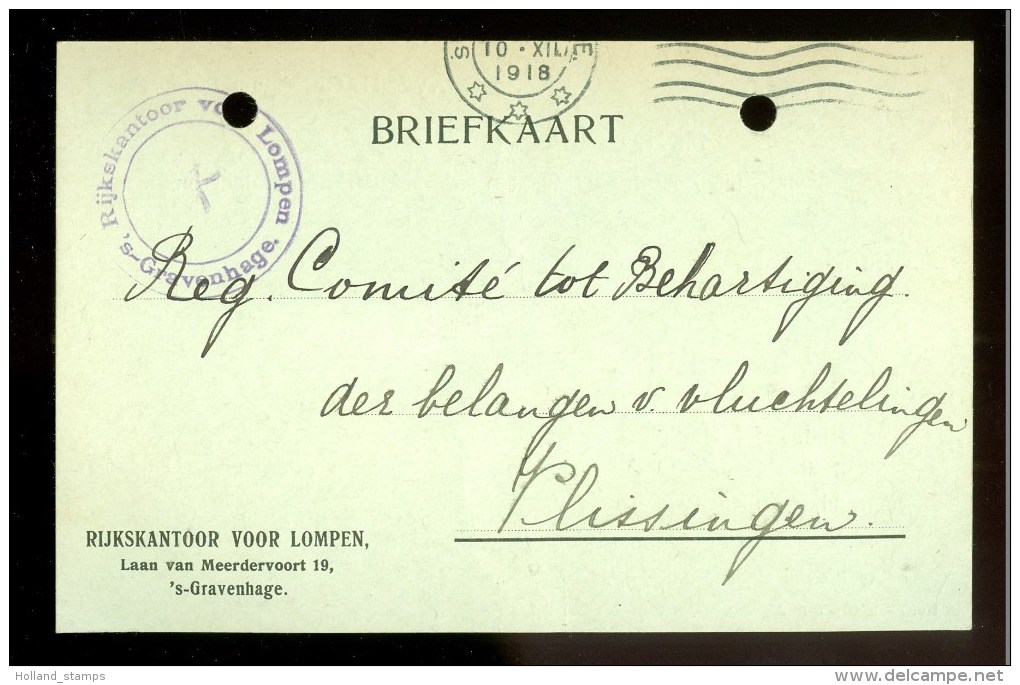 S 10 · XII E
1918
BRIEFKAART
Rijkskantoor voor Lompen
's-Gravenhage.
Reg. Comité tot Behartiging
der belangen v. vluchtelingen
Vlissingen.
RIJKSKANTOOR VOOR LOMPEN,
Laan van Meerdervoort 19,
's-Gravenhage.
Holland_stamps
delcampe.net